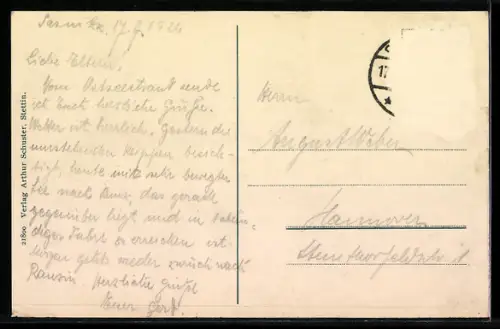 17.7.1924
Liebe Eltern.
Vom Ostseestrand sende
ich Euch herzliche Grüße.
Wetter ist herrlich. Gestern die
besich-
tigt, heute mit sehr bewegter
See nach das gerade
gegenüber liegt und in
diger Fahrt zu erreichen ist.
Morgen geht wieder zurück nach
Herzliche Grüße
Euer Gert.
21800. Verlag Arthur Schuster, Stettin.
17
Herrn
August Weber
Hannover